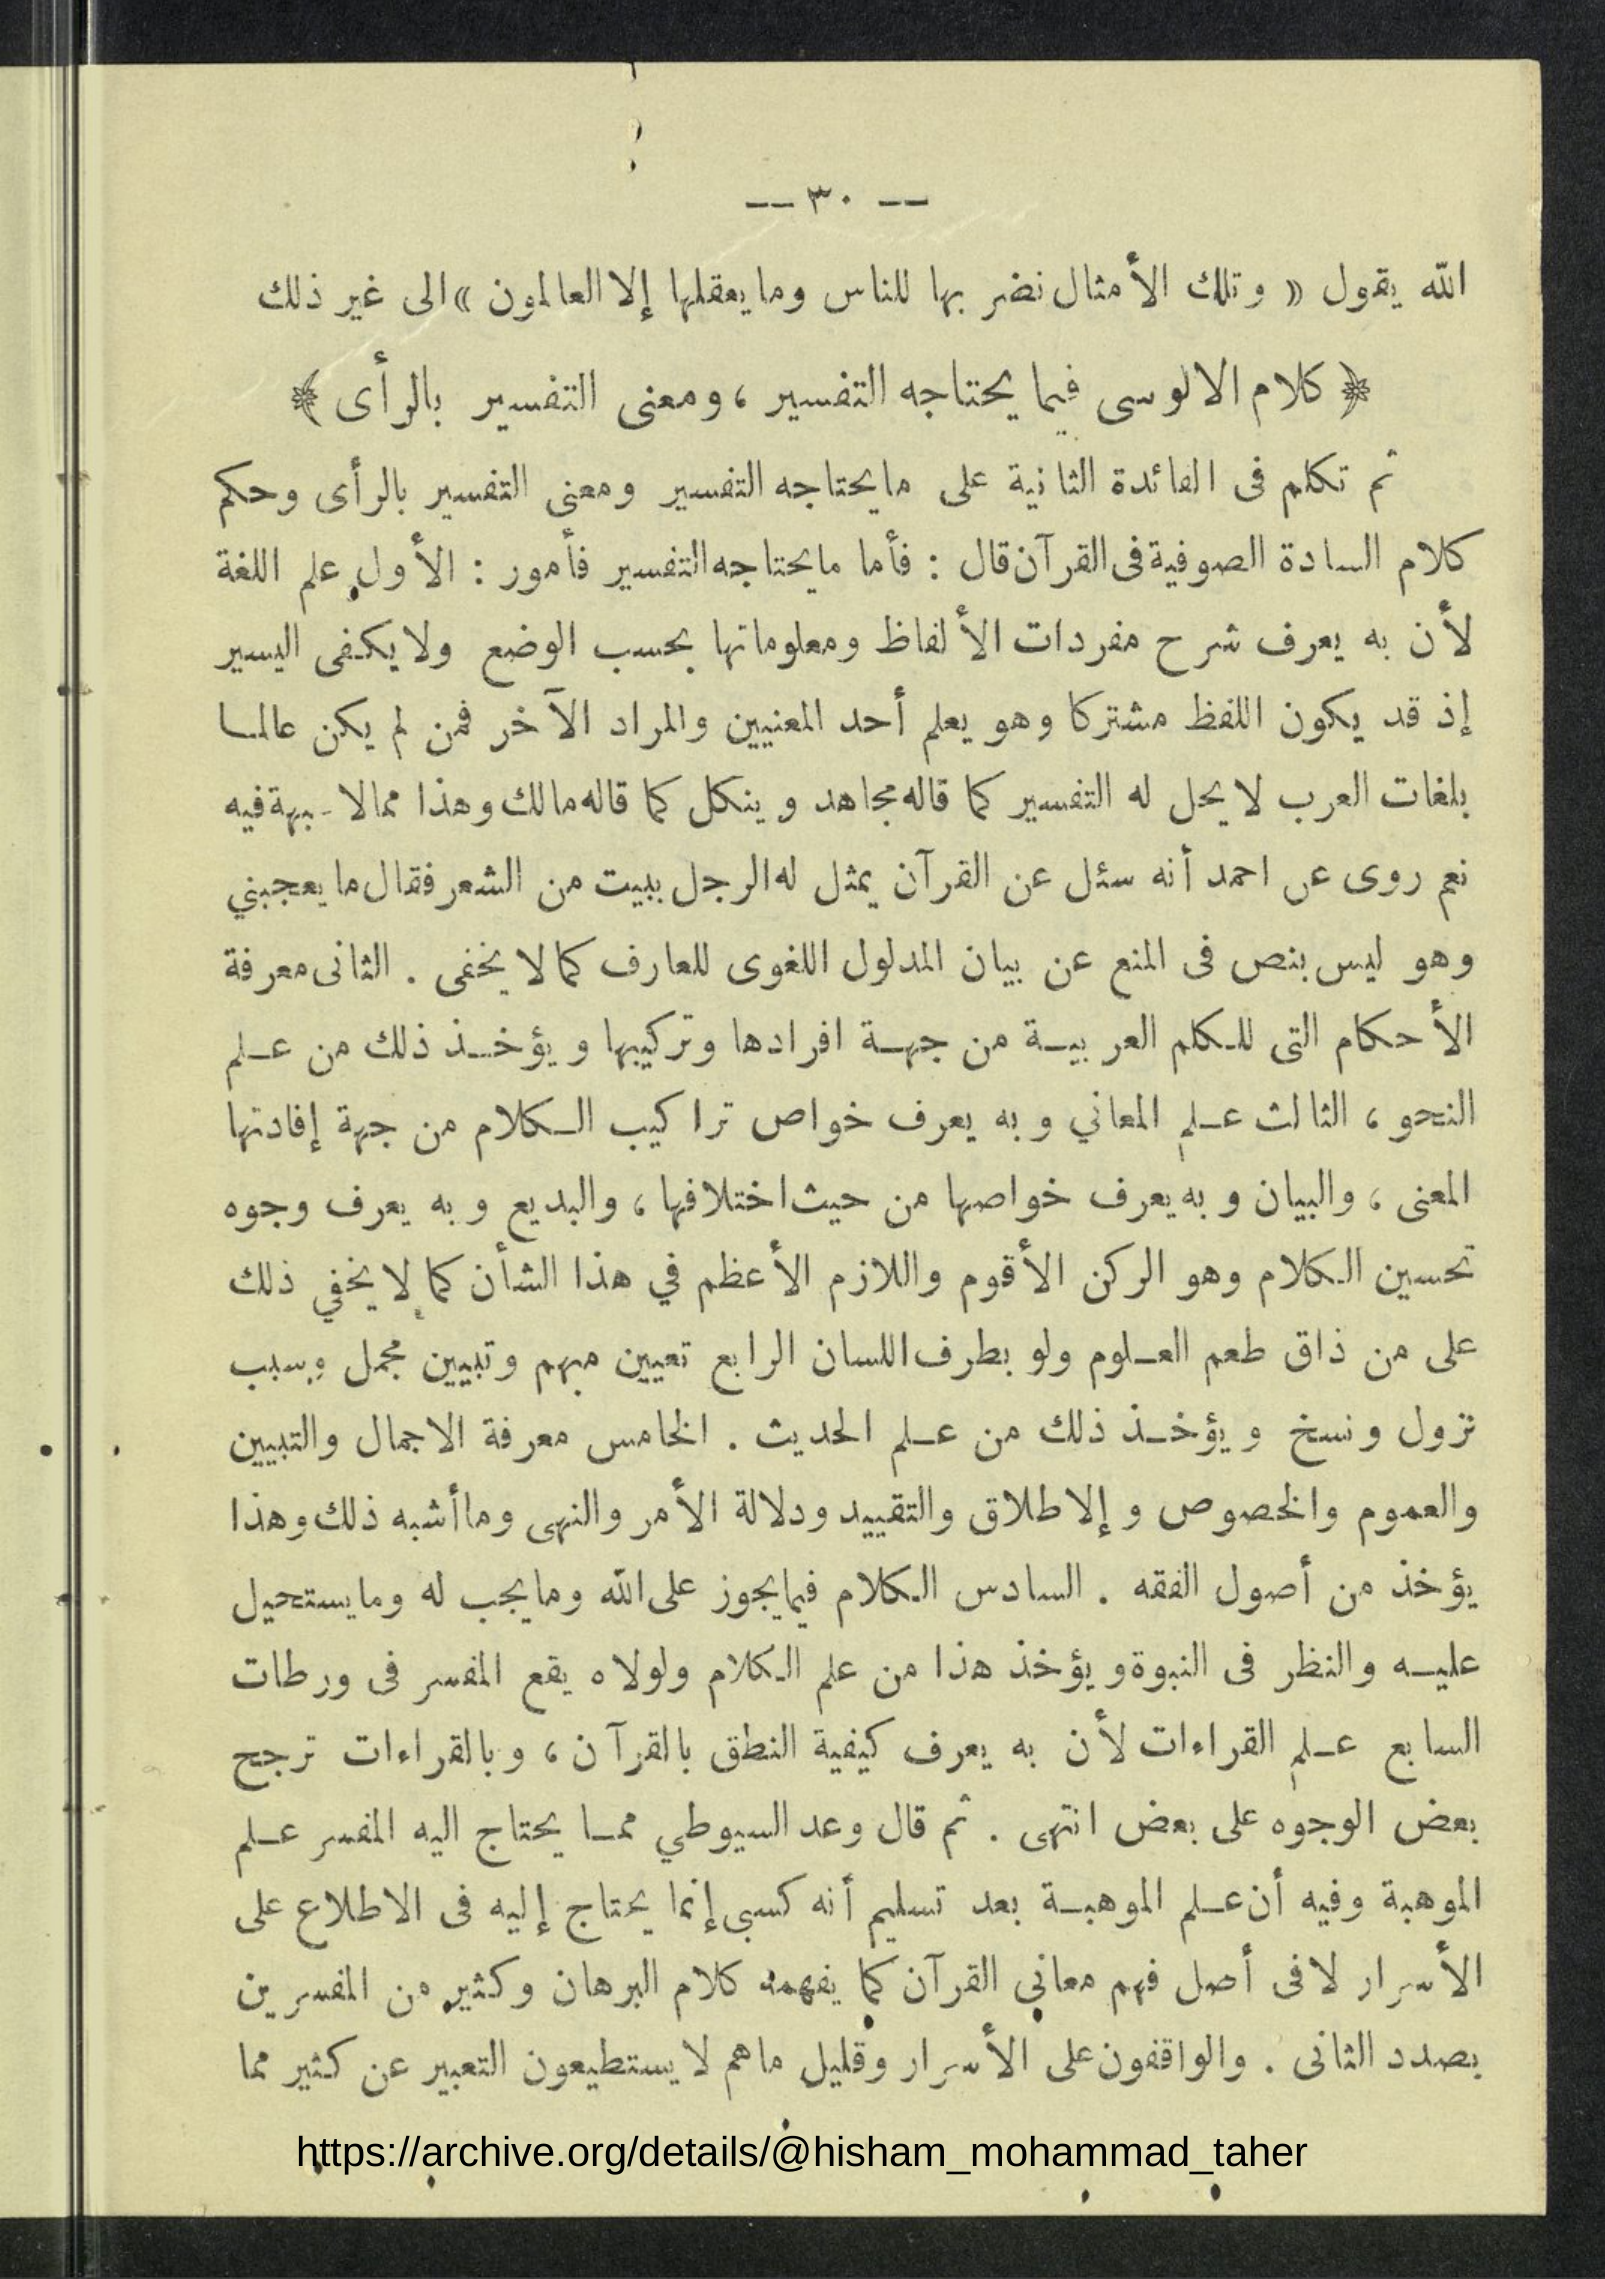 -- ٣٠ --
الله يقول « وتلك الأمثال نضربها للناس وما يعقلها إلا العالمون » الى غير ذلك
﴿ كلام الالوسى فيما يحتاجه التفسير ، ومعنى التفسير بالرأى ﴾
ثم تكلم فى الفائدة الثانية على ما يحتاجه التفسير ومعنى التفسير بالرأى وحكم
كلام السادة الصوفية فى القرآن قال : فأما ما يحتاجه التفسير فأمور : الأول علم اللغة
لأن به يعرف شرح مفردات الألفاظ ومعلوماتها بحسب الوضع ولا يكفى اليسير
إذ قد يكون اللفظ مشتركا وهو يعلم أحد المعنيين والمراد الآخر فمن لم يكن عالما
بلغات العرب لا يحل له التفسير كما قاله مجاهد وينكل كما قاله مالك وهذا مما لا فيه
نعم روى عن احمد أنه سئل عن القرآن يمثل له الرجل ببيت من الشعر فقال ما يعجبني
وهو ليس بنص فى المنع عن بيان المدلول اللغوى للعارف كما لا يخفى . الثانى معرفة
الأحكام التى للكلم العربية من جهة افرادها وتركيبها ويؤخذ ذلك من علم
النحو ، الثالث علم المعاني وبه يعرف خواص تراكيب الكلام من جهة إفادتها
المعنى ، والبيان وبه يعرف خواصها من حيث اختلافها ، والبديع وبه يعرف وجوه
تحسين الكلام وهو الركن الأقوم واللازم الأعظم في هذا الشأن كما لا يخفي ذلك
على من ذاق طعم العلوم ولو بطرف اللسان الرابع تعيين مبهم وتبيين مجمل وسبب
نزول ونسخ ويؤخذ ذلك من علم الحديث . الخامس معرفة الاجمال والتبيين
والعموم والخصوص و إلاطلاق والتقييد ودلالة الأمر والنهى وما أشبه ذلك وهذا
يؤخذ من أصول الفقه . السادس الكلام فيما يجوز على الله وما يجب له وما يستحيل
عليه والنظر فى النبوة ويؤخذ هذا من علم الكلام ولولاه يقع المفسر فى ورطات
السابع علم القراءات لأن به يعرف كيفية النطق بالقرآن ، وبالقراءات ترجح
بعض الوجوه على بعض انتهى . ثم قال وعد السيوطي مما يحتاج اليه المفسر علم
الموهبة وفيه أن علم الموهبة بعد تسليم أنه كسبى إنما يحتاج إليه فى الاطلاع على
الأسرار لا فى أصل فهم معاني القرآن كما يفهمه كلام البرهان وكثير من المفسرين
بصدد الثانى . والواقفون على الأسرار وقليل ما هم لا يستطيعون التعبير عن كثير مما
https://archive.org/details/@hisham_mohammad_taher